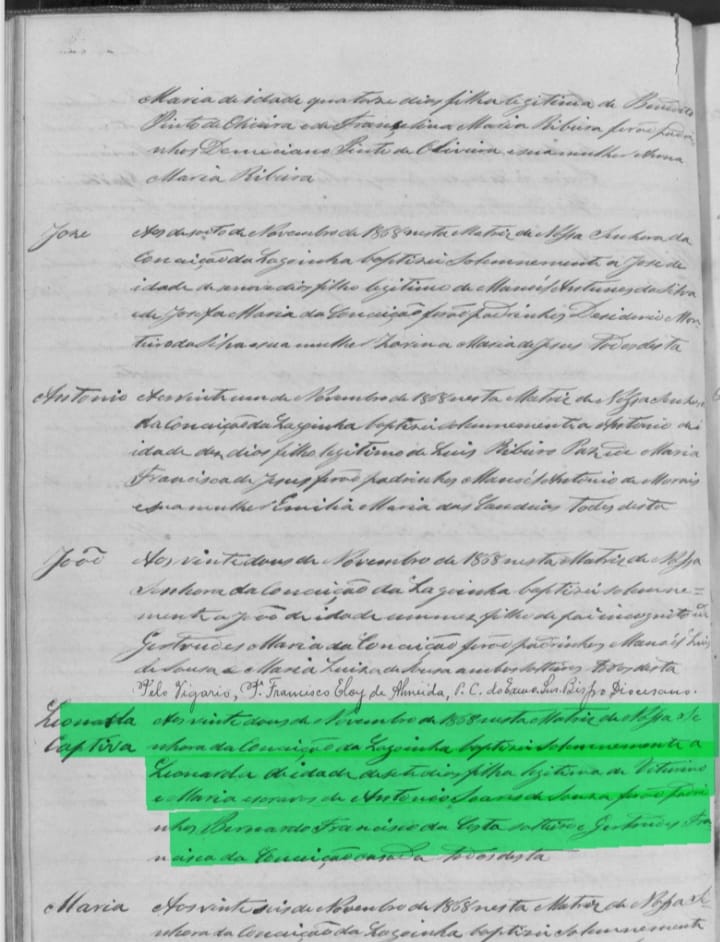 Maria de idade quatorze dias filha legitima de Benedito
Pinto de Oliveira e de Francelina Maria Ribeira forão padri
nhos Domiciano Pinto de Oliveira e sua mulher Anna
Maria Ribeira
Jose
Aos desoito de Novembro de 1868 nesta Matriz de Nossa Senhora da
Conceição da Lagoinha baptizei solemnemente a Jose de
idade de nove dias filho legitimo de Manoel Antunes da Silva
e de Josefa Maria da Conceição forão padrinhos Desiderio Mon
teiro da Silva e sua mulher Maria de Jesus todos desta
Antonio
Aos vinte um de Novembro de 1868 nesta Matriz de Nossa Senhora
da Conceição da Lagoinha baptizei solemnemente a Antonio de
idade dez dias filho legitimo de Luis Ribeiro e Maria
Francisca de Jesus forão padrinhos Manoel Antonio de Morais
e sua mulher Emilia Maria das Candeias todos desta
João
Aos vinte dous de Novembro de 1868 nesta Matriz de Nossa
Senhora da Conceição da Lagoinha baptizei solemne=
mente a João de idade um mez filho de pai incognito e
Gertrudes Maria da Conceição forão padrinhos Manoel Luis
de Sousa e Maria Luiza de Sousa ambos solteiros todos desta
Pelo Vigario, P.e Francisco Eloy de Almeida, P. C. do Exmo. Snr. Bispo Diocesano.
Leonarda
Captiva
Aos vinte dous de Novembro de 1868 nesta Matriz de Nossa Se
nhora da Conceição da Lagoinha baptizei solemnemente a
Leonarda de idade de sete dias filha legitima de Viturino
e Maria escravos de Antonio Soares de Souza forão Padri
nhos Bernardo Francisco da Costa solteiro e Gertrudes Fran
cisca da Conceição casada todos desta
Maria
Aos vinte seis de Novembro de 1868 nesta Matriz de Nossa Se
nhora da Conceição da Lagoinha baptizei solemnemente